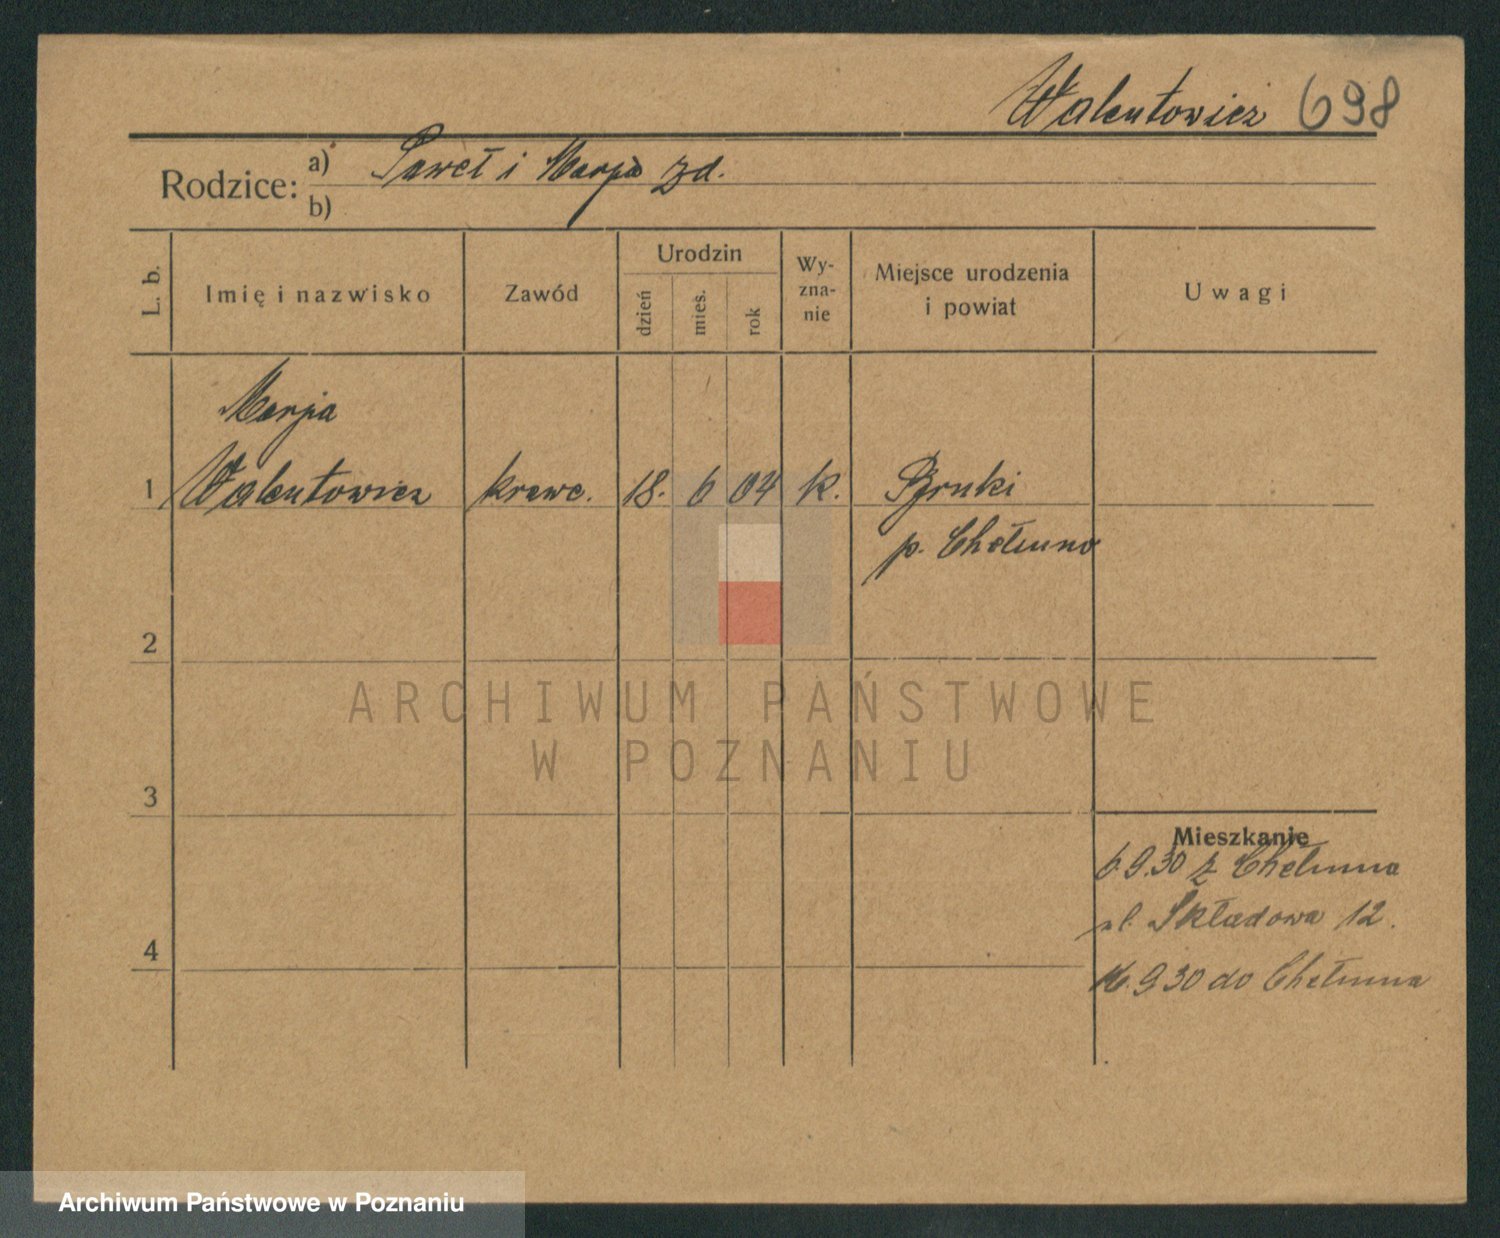 Walentowicz 698
Rodzice: a) Paweł i Marja zd.
b)
L. b.
Imię i nazwisko
Zawód
Urodzin
dzień
mies.
rok
Wy-
zna-
nie
Miejsce urodzenia
i powiat
Uwagi
Marja
1 Walentowicz krawc. 18. 6 04 k.
p. Chełmno
2
ARCHIWUM PAŃSTWOWE
W POZNANIU
3
Mieszkanie
6.9.30 z Chełmna
ul. Składowa 12.
4
16.9 30 do Chełmna
Archiwum Państwowe w Poznaniu